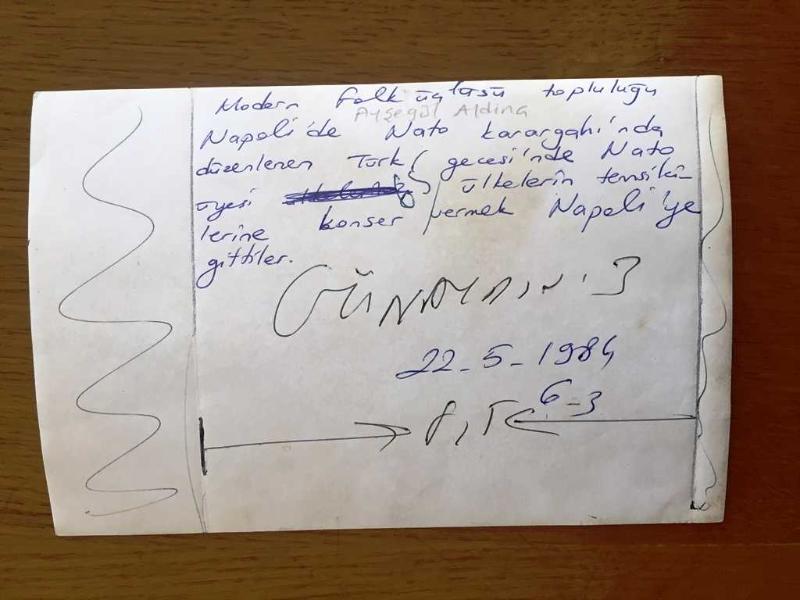 Modern Folk üçlüsü topluluğu
Ayşegül Aldinç
Napoli'de Nato karargahı'nda
düzenlenen Türk gecesi'nde Nato
üyesi ülkelerin temsilci-
lerine konser vermek Napoli'ye
gittiler.
GÜNAYDIN.3
22-5-1984
6-3
8,5